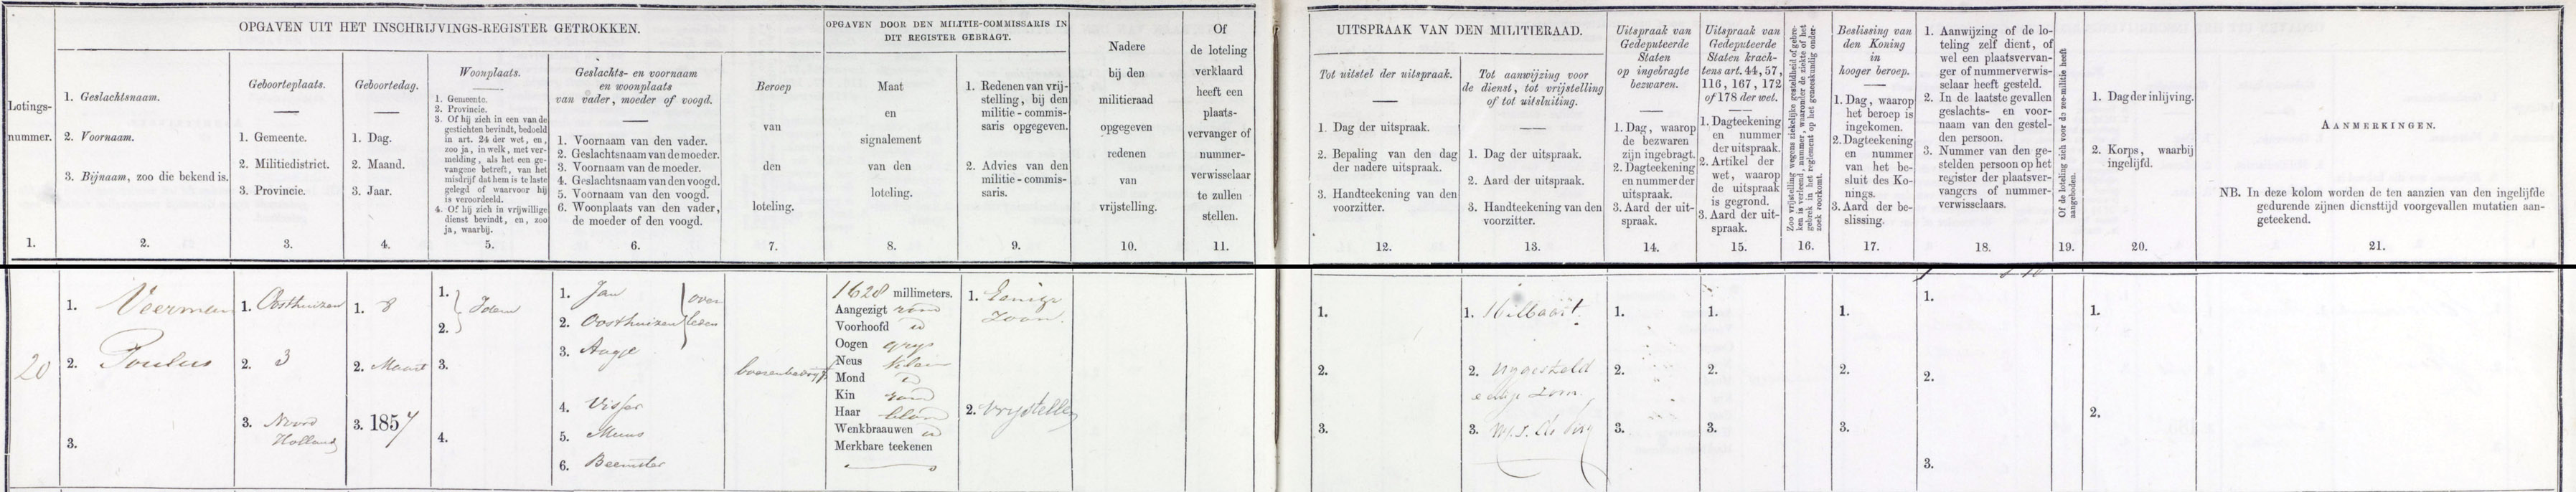 OPGAVEN UIT HET INSCHRIJVINGS-REGISTER GETROKKEN.
OPGAVEN DOOR DEN MILITIE-COMMISSARIS IN
DIT REGISTER GEBRAGT.
Lotings-
nummer.
1.
1. Geslachtsnaam.
2. Voornaam.
3. Bijnaam, zoo die bekend is.
2.
Geboorteplaats.
1. Gemeente.
2. Militiedistrict.
3. Provincie.
3.
Geboortedag.
1. Dag.
2. Maand.
3. Jaar.
4.
Woonplaats.
1. Gemeente.
2. Provincie.
3. Of hij zich in een van de
gestichten bevindt, bedoeld
in art. 24 der wet, en,
zoo ja, in welk, met ver-
melding, als het een ge-
vangene betreft, van het
misdrijf dat hem is te laste
gelegd of waarvoor hij
is veroordeeld.
4. Of hij zich in vrijwillige
dienst bevindt, en, zoo
ja, waarbij.
5.
Geslachts- en voornaam
en woonplaats
van vader, moeder of voogd.
1. Voornaam van den vader.
2. Geslachtsnaam van de moeder.
3. Voornaam van de moeder.
4. Geslachtsnaam van den voogd.
5. Voornaam van den voogd.
6. Woonplaats van den vader,
de moeder of den voogd.
6.
Beroep
van
den
loteling.
7.
Maat
en
signalement
van den
loteling.
8.
1. Redenen van vrij-
stelling, bij den
militie-commis-
saris opgegeven.
2. Advies van den
militie-commis-
saris.
9.
Nadere
bij den
militieraad
opgegeven
redenen
van
vrijstelling.
10.
Of
de loteling
verklaard
heeft een
plaats-
vervanger of
nummer-
verwisselaar
te zullen
stellen.
11.
UITSPRAAK VAN DEN MILITIERAAD.
Tot uitstel der uitspraak.
1. Dag der uitspraak.
2. Bepaling van den dag
der nadere uitspraak.
3. Handteekening van den
voorzitter.
12.
Tot aanwijzing voor
de dienst, tot vrijstelling
of tot uitsluiting.
1. Dag der uitspraak.
2. Aard der uitspraak.
3. Handteekening van den
voorzitter.
13.
Uitspraak van
Gedeputeerde
Staten
op ingebragte
bezwaren.
1. Dag, waarop
de bezwaren
zijn ingebragt.
2. Dagteekening
en nummer der
uitspraak.
3. Aard der uit-
spraak.
14.
Uitspraak van
Gedeputeerde
Staten krach-
tens art. 44, 57,
116, 167, 172
of 178 der wet.
1. Dagteekening
en nummer
der uitspraak.
2. Artikel der
wet, waarop
de uitspraak
is gegrond.
3. Aard der uit-
spraak.
15.
Zoo vrijstelling wegens ziekelijke gesteldheid of gebre-
ken is verleend, nummer, waaronder de ziekte of het
gebrek in het reglement op het geneeskundig onder-
zoek voorkomt.
16.
Beslissing van
den Koning
in
hooger beroep.
1. Dag, waarop
het beroep is
ingekomen.
2. Dagteekening
en nummer
van het be-
sluit des Ko-
nings.
3. Aard der be-
slissing.
17.
1. Aanwijzing of de lo-
teling zelf dient, of
wel een plaatsvervan-
ger of nummerverwis-
selaar heeft gesteld.
2. In de laatste gevallen
geslachts- en voor-
naam van den gestel-
den persoon.
3. Nummer van den ge-
stelden persoon op het
register der plaatsver-
vangers of nummer-
verwisselaars.
18.
Of de loteling zich voor de zee-militie heeft
aangeboden.
19.
1. Dag der inlijving.
2. Korps, waarbij
ingelijfd.
20.
AANMERKINGEN.
NB. In deze kolom worden de ten aanzien van den ingelijfde
gedurende zijnen diensttijd voorgevallen mutatien aan-
geteekend.
21.
20
1. Veerman
2. Poulus
3.
1. Oosthuizen
2. 3
3. Noord
Holland
1. 8
2. Maart
3. 1857
1.
2.
Idem
3.
4.
1. Jan
2. Oosthuizen
3. Aagje
over
leden
4. Visser
5. Muus
6. Beemster
boerenbedryf
1628 millimeters.
Aangezigt rond
Voorhoofd id
Oogen grys
Neus klein
Mond id
Kin rond
Haar blond
Wenkbraauwen id
Merkbare teekenen
1. Eenige
zoon.
2. Vrystellen
1.
2.
3.
1. 16
2. Vrygesteld
eenige zoon.
3.
1.
2.
3.
1.
2.
3.
1.
2.
3.
1.
2.
3.
1.
2.